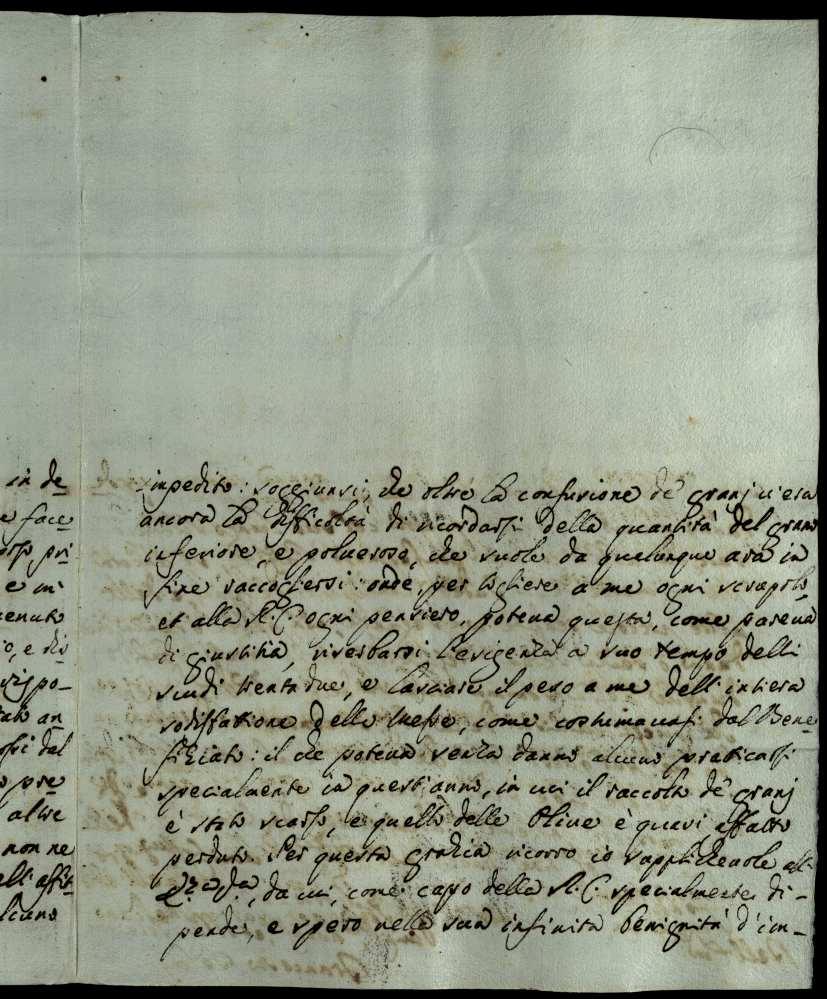 in de
e face
orso pri
e in
venuto
io, e dis
rispo-
tato an
ossi dal
o pre
altre
non ne
ell'affit
lcuno
impedito: soggiunsi, che oltre la confusione de' granj u'era
ancora la difficoltà di ricordarsi della quantità del grano
inferiore, e polueroso, che suole da qualunque ara in
fine raccogliersi: onde, per togliere a me ogni scrupolo
et alla R. C. ogni pensiero, poteua questa, come pareua
di giustitia, riserbarsi l'esigenza a suo tempo delli
scudi trenta due, e lasciare il peso a me dell'intiera
sodisfattione delle Messe, come costumauasi dal Bene
fiziato: il che poteua senza danno alcuno praticarsi
specialmente in quest'anno, in cui il raccolto de' granj
è stato scarso, e quello delle Oliue è quasi affatto
perduto. Per questa grazia ricorro io supplicheuole all
da cui, come capo della R. C. specialmente di-
pende, e spero nella sua infinita benignità d'im-